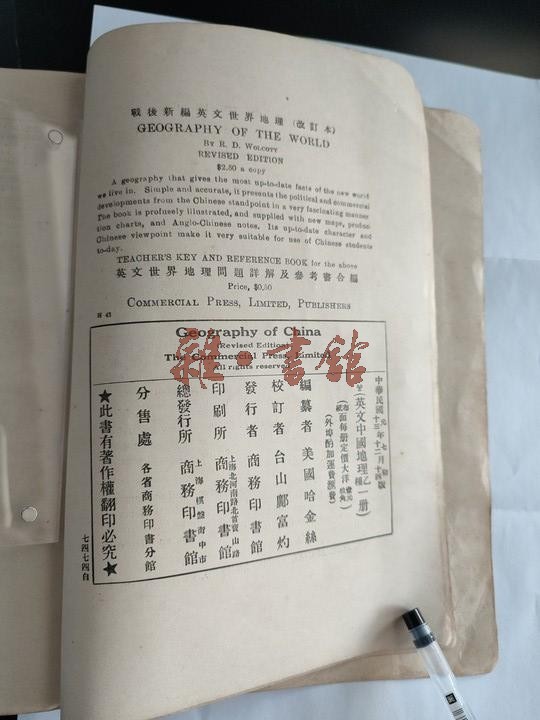 戰後新編英文世界地理（改訂本）
GEOGRAPHY OF THE WORLD
BY R. D. WOLCOTT
REVISED EDITION
$2.50 a copy
A geography that gives the most up-to-date facts of the new world
we live in. Simple and accurate, it presents the political and commercial
developments from the Chinese standpoint in a very fascinating manner
The book is profusely illustrated, and supplied with new maps, produc-
tion charts, and Anglo-Chinese notes. Its up-to-date character and
Chinese viewpoint make it very suitable for use of Chinese students
to-day.
TEACHER'S KEY AND REFERENCE BOOK for the above
英文世界地理問題詳解及參考書合編
Price, $0.50
COMMERCIAL PRESS, LIMITED, PUBLISHERS
H 43
Geography of China
(Revised Edition)
The Commercial Press, Limited
All rights reserved
中華民國
十三年十二月十四版
英文中國地理乙種一册）
面每册定價大洋
（外埠酌加運費匯費）
編纂者 美國哈金絲
校訂者 台山鄺富灼
發行者 商務印書館
印刷所 上海北河南路北首寶山路 商務印書館
總發行所 上海棋盤街中市 商務印書館
分售處 各省商務印書分館
★此書有著作權翻印必究★
七四七四自
雜·書館